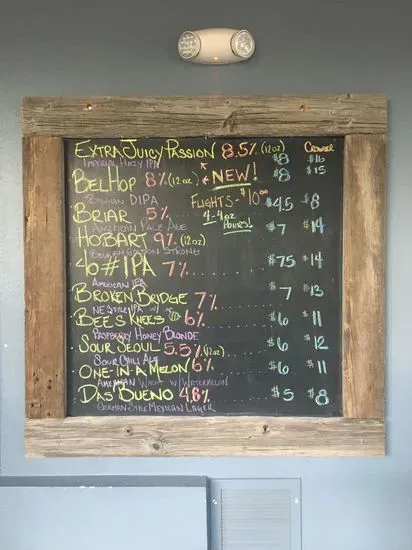 CROWLER
EXTRA JUICY PASSION 8.5% (12oz) $8 $16
IMPERIAL HAZY IPA
BELHOP 8% (12oz) NEW! $8 $15
BELGIAN DIPA
FLIGHTS - $10.00
BRIAR 5% $4.5 $8
AMERICAN PALE ALE
4-4oz POURS!
HOBART 9% (12oz) $7 $14
BELGIAN STRONG
46#IPA 7% $7.5 $14
AMERICAN IPA
BROKEN BRIDGE 7% $7 $13
NE STYLE IPA
BEE'S KNEES 6% $6 $11
RASPBERRY HONEY BLONDE
SOUR SEOUL 5.5% (12oz) $6 $12
SOUR CHILI ALE
ONE-IN-A MELON 6% $6 $11
AMERICAN WHEAT W/ WATERMELON
DAS BUENO 4.8% $5 $8
GERMAN STYLE MEXICAN LAGER